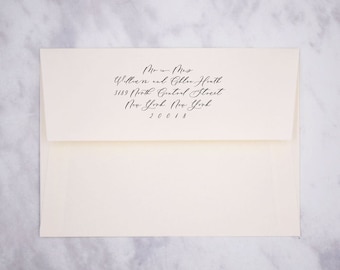 Mr & Mrs
William and Chloe Heath
1189 North Central Street
New York, New York
20018